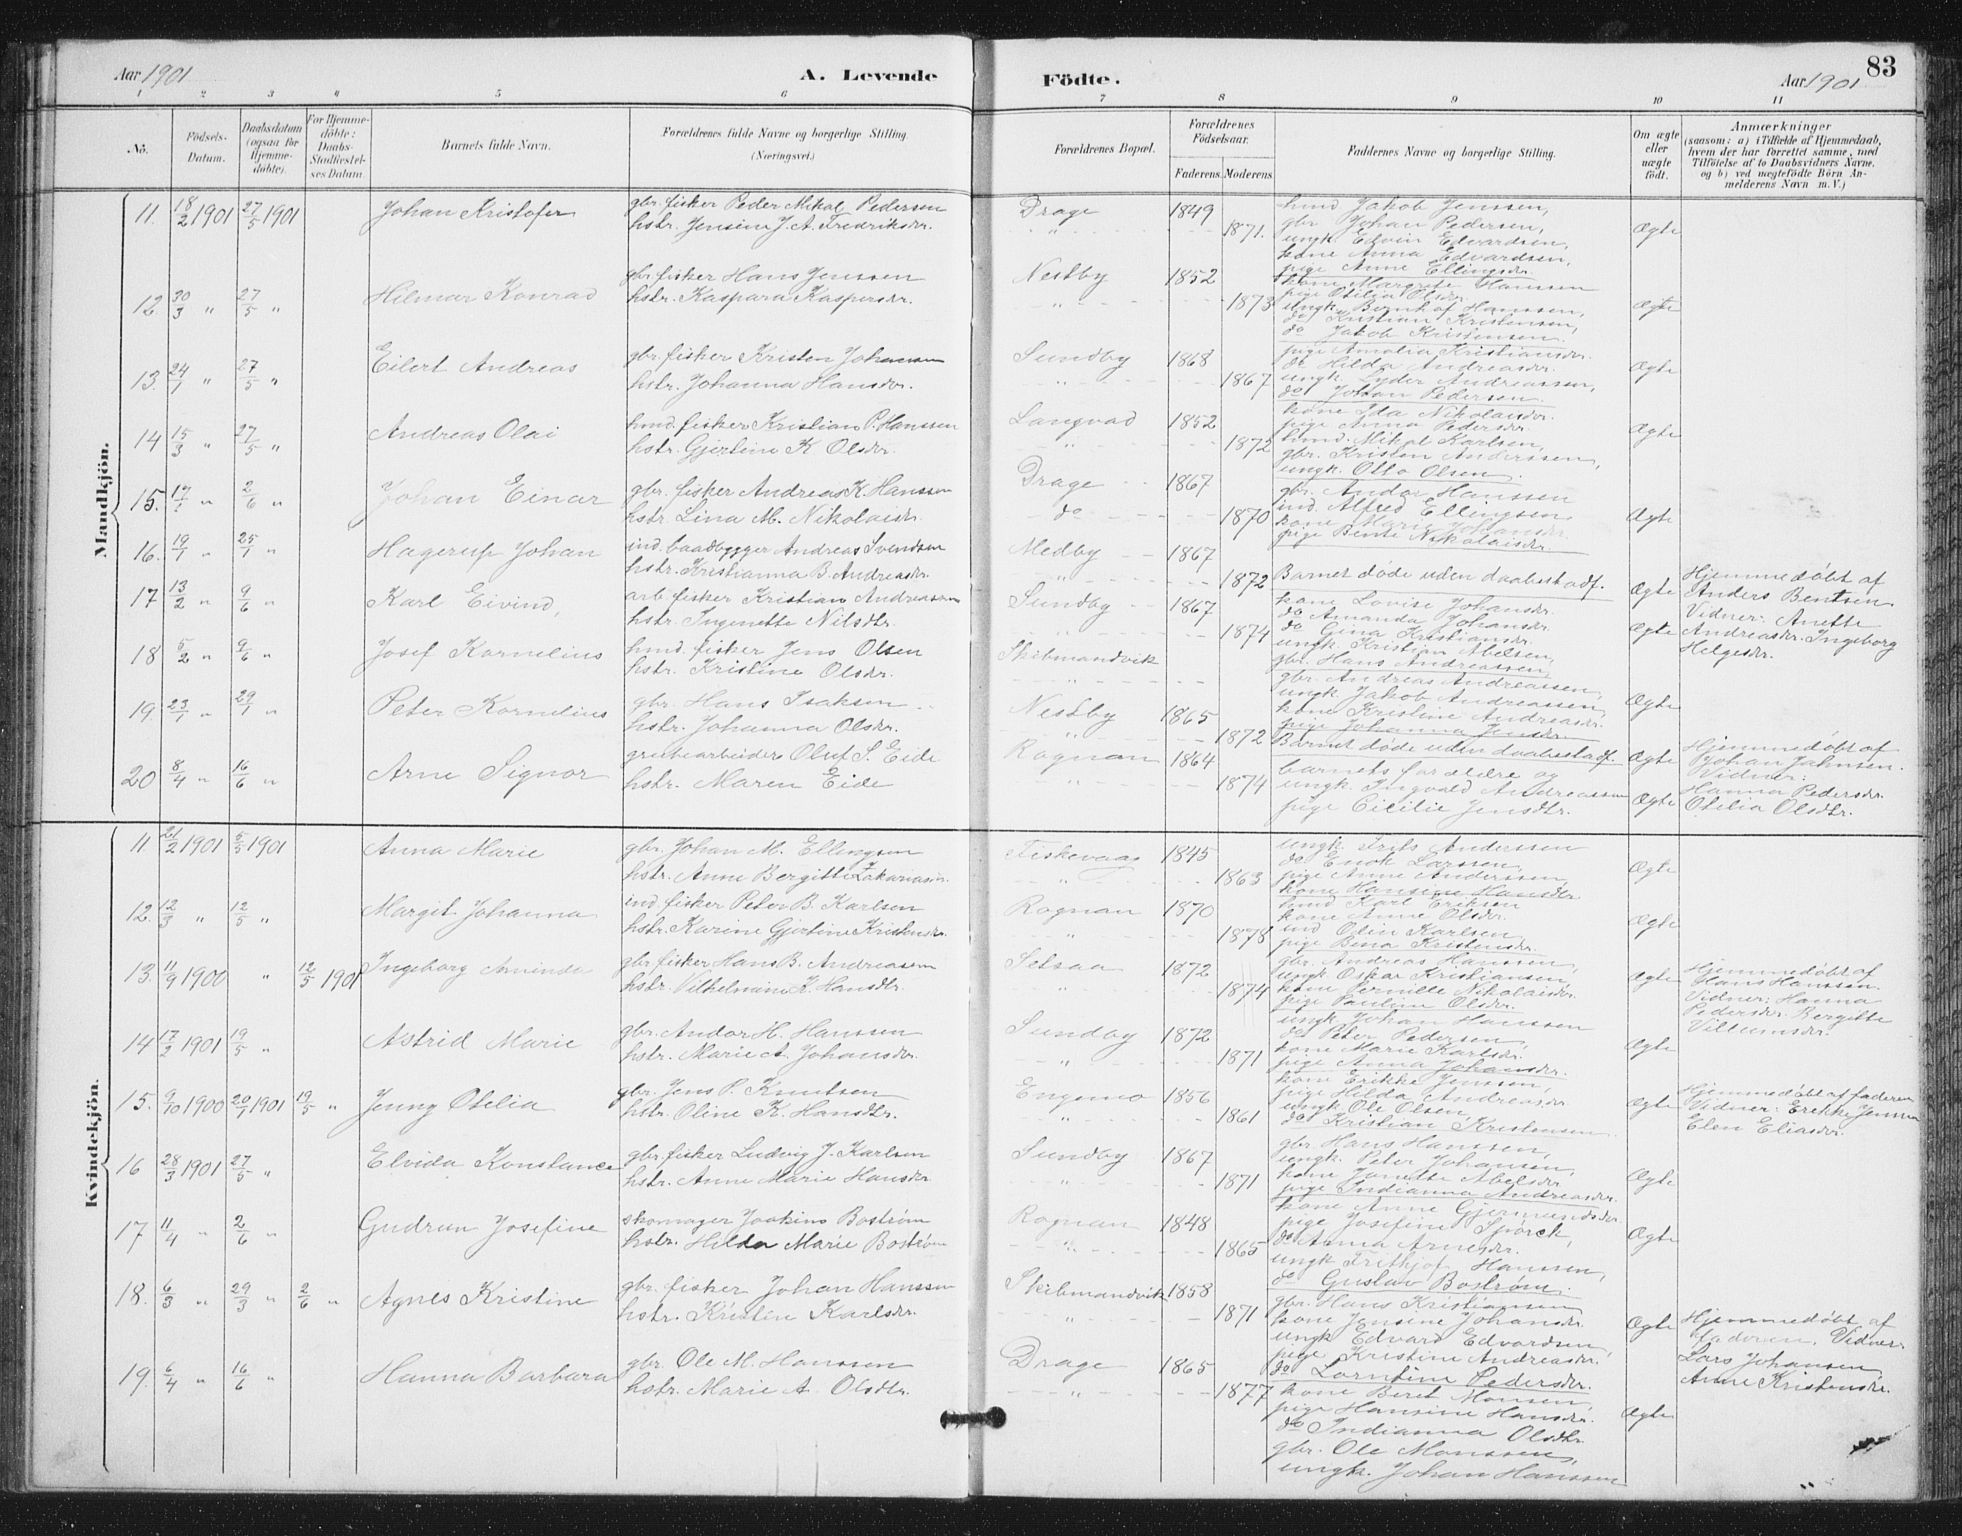 Aar 1901
A. Levende
Födte.
Aar 1901
83
1 2 3 4 5 6 7 8 9 10 11
No.
Födsels-
Datum.
Daabsdatum
(ogsaa for
Hjemme-
döbte).
For Hjemme-
döbte:
Daabs-
Stadfæstel-
ses Datum
Barnets fulde Navn.
Forældrenes fulde Navne og borgerlige Stilling.
(Næringsvei.)
Forældrenes Bopæl.
Forældrenes
Födselsaar.
Faderens. Moderens.
Faddernes Navne og borgerlige Stilling.
Om ægte
eller
uægte
födt.
Anmærkninger
(saasom: a) i Tilfælde af Hjemmedaab,
hvem der har forrettet samme, med
Tilföielse af to Daabsvidners Navne,
og b) ved uægtefödte Börn An-
melderens Navn m. V.)
Mandkjön.
11. 18/2 1901 27/5 1901 Johan Kristofer
gbr. fisker Peder Mikal Pedersen
hstr. Jensine J. A. Fredriksdr.
Drage 1849
" 1871.
hmd Jakob Jenssen,
gbr. Johan Pedersen,
ungk. Edvin Edvardsen,
kone Anna Edvardsen,
pige Anne Ellingsdr.
Ægte
12. 30/3 " 27/5 " Hilmar Konrad
gbr. fisker Hans Jenssen
hstr. Kaspara Kaspersdr.
Nestby 1852
" 1873
kone Margrete Hanssen
pige Otilia Olsdr.
ungk. Bernhof Hanssen,
do Kristian Kristensen,
do Jakob Kristensen.
Ægte
13. 24/1 " 27/5 " Eilert Andreas
gbr. fisker Kristen Johansen
hstr. Johanna Hansdr.
Sundby 1868
" 1867
pige Amalia Kristiansdr.
do Hilda Andreasdr.
ungk. Lyder Andreassen,
do Johan Pedersen.
Ægte
14 15/3 " 27/5 " Andreas Olai
hmd. fisker Kristian P. Hanssen
hstr. Gjertine K Olsdr.
Langvad 1852
" 1872
kone Ida Nikolaisdr.
pige Anna Pedersdr.
hmd. Mikal Karlsen
gbr. Kristen Anderssen,
ungk. Otto Olsen.
Ægte
15. " 2/6 " Johan Einar
gbr. fisker Andreas K. Hanssen
hstr. Lina M. Nikolaisdr.
Drage 1867
do 1870
gbr. Andor Hanssen
ind. Alfred Ellingsen,
kone Marie Johansdr.
pige Bente Nikolaisdr.
Ægte
16. 19/1 " 25/1 " Hagerup Johan
ind. baadbygger Andreas Svendsen
hstr. Kristianna B. Andreasdr.
Medby 1867
" 1872
Barnet døde uden daabestadf.
Ægte
Hjemmedøbt af
Anders Bentsen
Vidner: Anette
Andreasdr. Ingeborg
Helgesdr.
17 13/2 " 9/6 " Karl Eivind,
arb. fisker Kristian Andreassen
hstr. Ingenette Nilsdtr.
Sundby 1867
" 1874
kone Lovise Johansdr.
do Amanda Johansdr.
do Gina Kristiansdr.
ungk. Kristian Abelsen,
gbr. Hans Andreassen
Ægte
18 5/2 " 9/6 " Josef Kornelius
hmd. fisker Jens Olsen
hstr. Kristine Olsdr.
Skibmandvik
"
gbr. Andreas Andreassen,
ungk. Jakob Andreassen,
kone Kristine Andreasdr.
pige Johanna Jensdr.
Ægte
19 23/1 " 29/1 " Peter Kornelius
gbr. Hans Isaksen
hstr. Johanna Olsdr.
Nestby 1865
" 1872
Barnet døde uden daabestadf.
Ægte
Hjemmedøbt af
Johan Jahnsen.
Vidner:
Hanna Pedersdr.
Otilia Olsdtr.
20 8/4 " 16/6 " Arne Signor
grubearbeider Oluf S. Eide
hstr. Maren Eide
Rognan 1864
" 1874
barnets forældre og
ungk. Ingvald Andreassen
pige Cicilie Jensdtr.
Ægte
Kvindekjön.
11 21/2 1901 5/5 1901 Anna Marie
gbr. Johan M. Ellingsen
hstr. Anne Bergitte Zakariasdr.
Fiskevaag 1845
" 1863
ungk. Frits Anderssen
do Enok Larssen,
pige Anne Anderssen,
kone Hansine Hansdtr.
Ægte
12. 12/3 " 12/5 " Margit Johanna
ind. fisker Peter B. Karlsen
hstr. Karine Gjertine Kristensdr.
Rognan 1870
" 1878
hmd Karl Eriksen
kone Anne Olsdr.
ind Olin Karlsen,
pige Bina Kristensdr.
Ægte
13. 11/9 1900 " 12/5 1901 Ingeborg Aminda
gbr. fisker Hans B. Andreassen
hstr. Vilhelmine K. Hansdtr.
Setsaa 1872
" 1874
gbr. Andreas Hanssen,
ungk. Oskar Kristiansen,
kone Pernille Nikolaisdr.
pige Pauline Olsdr.
Ægte
Hjemmedøbt af
Hans Hanssen.
Vidner: Hanna
Pedersdr. Bergitte
Villumsdr.
14 17/2 1901 19/5 " Astrid Marie
gbr. Andor H. Hanssen
hstr. Marie A. Johansdr.
Sundby 1872
" 1871
ungk. Johan Hanssen
do Peter Pedersen,
kone Marie Karlsdr.
pige Anna Johansdr.
Ægte
15. 9/10 1900 20/1 1901 19/5 " Jenny Otelia
gbr. Jens P. Knutsen
hstr. Oline K. Hansdtr.
Engemo 1856
" 1861
kone Erikke Jenssen,
pige Hilda Andreasdr
ungk. Ole Olsen
do Kristian Kristensen.
Ægte
Hjemmedøbt af faderen
Vidner: Erikke Jenssen
Elen Eliasdr.
16 28/3 1901 27/5 " Elvida Konstance
gbr. fisker Ludvig J. Karlsen
hstr. Anne Marie Hansdr
Sundby 1867
" 1871
gbr. Hans Hanssen,
ungk. Peter Johansen,
kone Janette Abelsdr
pige Indianna Andreasdr.
Ægte
17 11/4 " 2/6 " Gudrun Josefine
skomager Joakim Bostrøm
hstr. Hilda Marie Bostrøm
Rognan 1848
" 1865
kone Anne Gjermundsdr.
pige Josefine Spørck,
do Anna Arnesdr.
ungk Frithjof Hanssen,
do Gustav Bostrøm.
Ægte
18. 6/3 " 29/3 " 2/6 " Agnes Kristine
gbr. fisker Johan Hanssen
hstr. Kristin Karlsdr.
Skibmandvik 1858
" 1871
gbr. Hans Kristiansen
kone Jensine Johansdr
ungk Edvard Edvardsen,
pige Kristine Andreasdr.
do Lorntine Pedersdr.
Ægte
Hjemmedøbt af
faderen. Vidner:
Lars Johansen
Anne Kristensdr.
19. 6/4 " 16/6 " Hanna Barbara
gbr. Ole M. Hanssen
hstr. Marie A. Olsdtr.
Drage 1865
" 1877
kone Beret Monsen,
pige Hansine Hansdr.
do Indianna Olsdtr.
gbr. Ole Monssen,
ungk. Johan Hanssen
Ægte